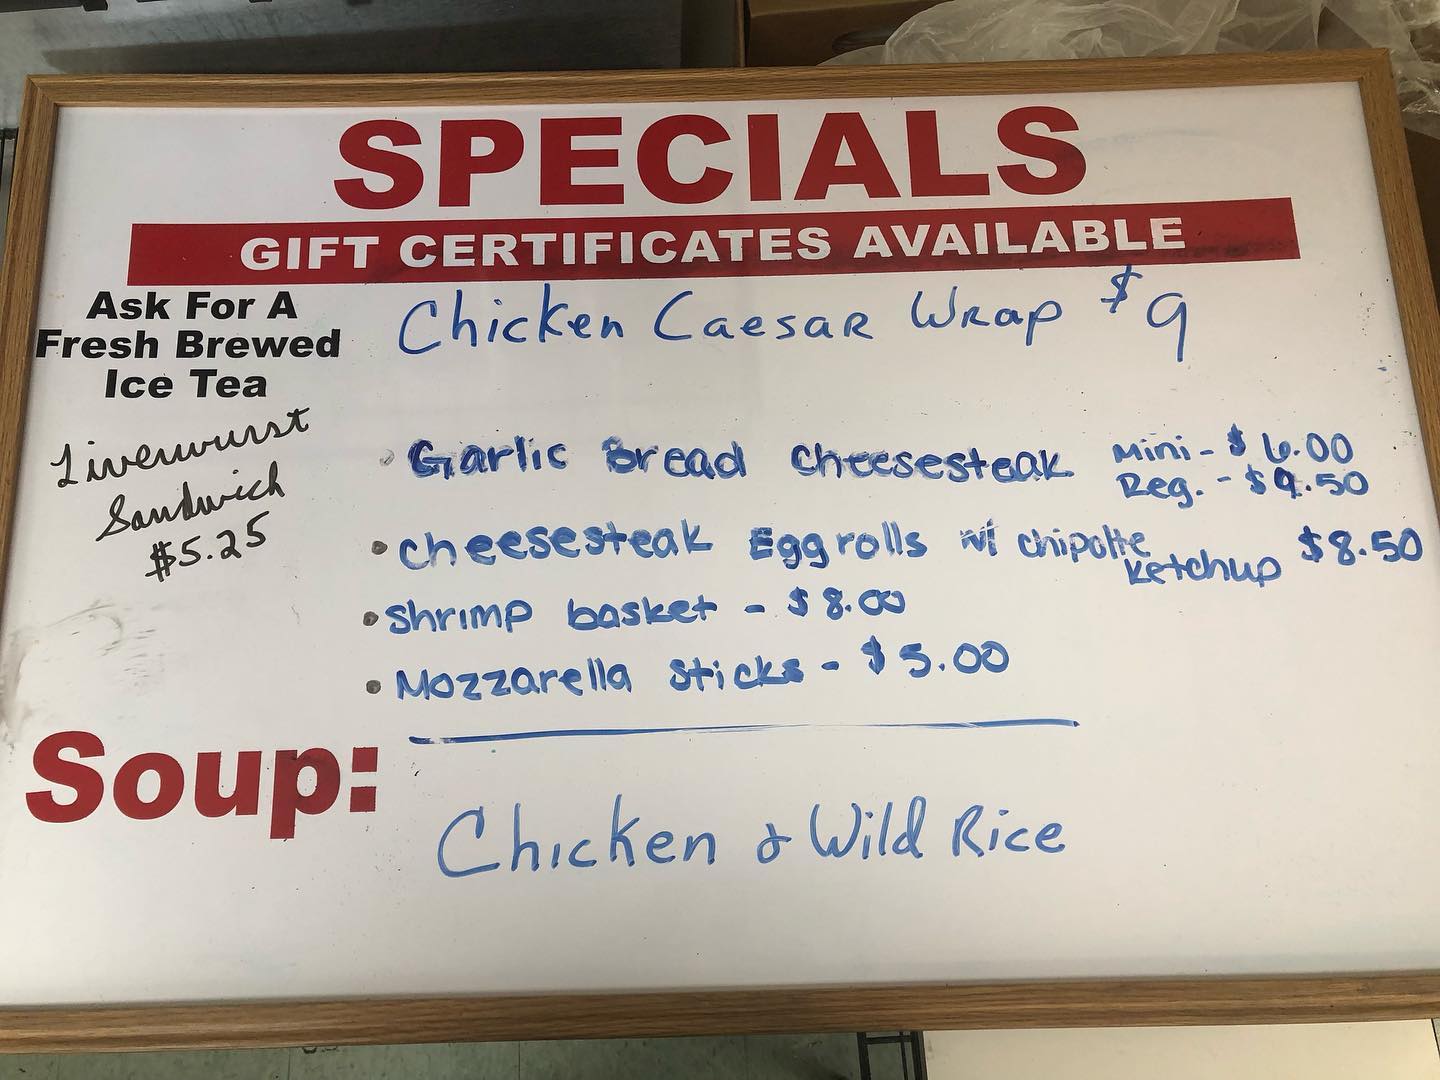 SPECIALS
GIFT CERTIFICATES AVAILABLE
Ask For A
Fresh Brewed
Ice Tea
Liverwurst
Sandwich
$5.25
Chicken Caesar Wrap $9
• Garlic Bread Cheesesteak Mini - $6.00
Reg. - $9.50
• Cheesesteak Eggrolls w/ chipolte
ketchup $8.50
• Shrimp basket - $8.00
• Mozzarella Sticks - $5.00
Soup:
Chicken & Wild Rice